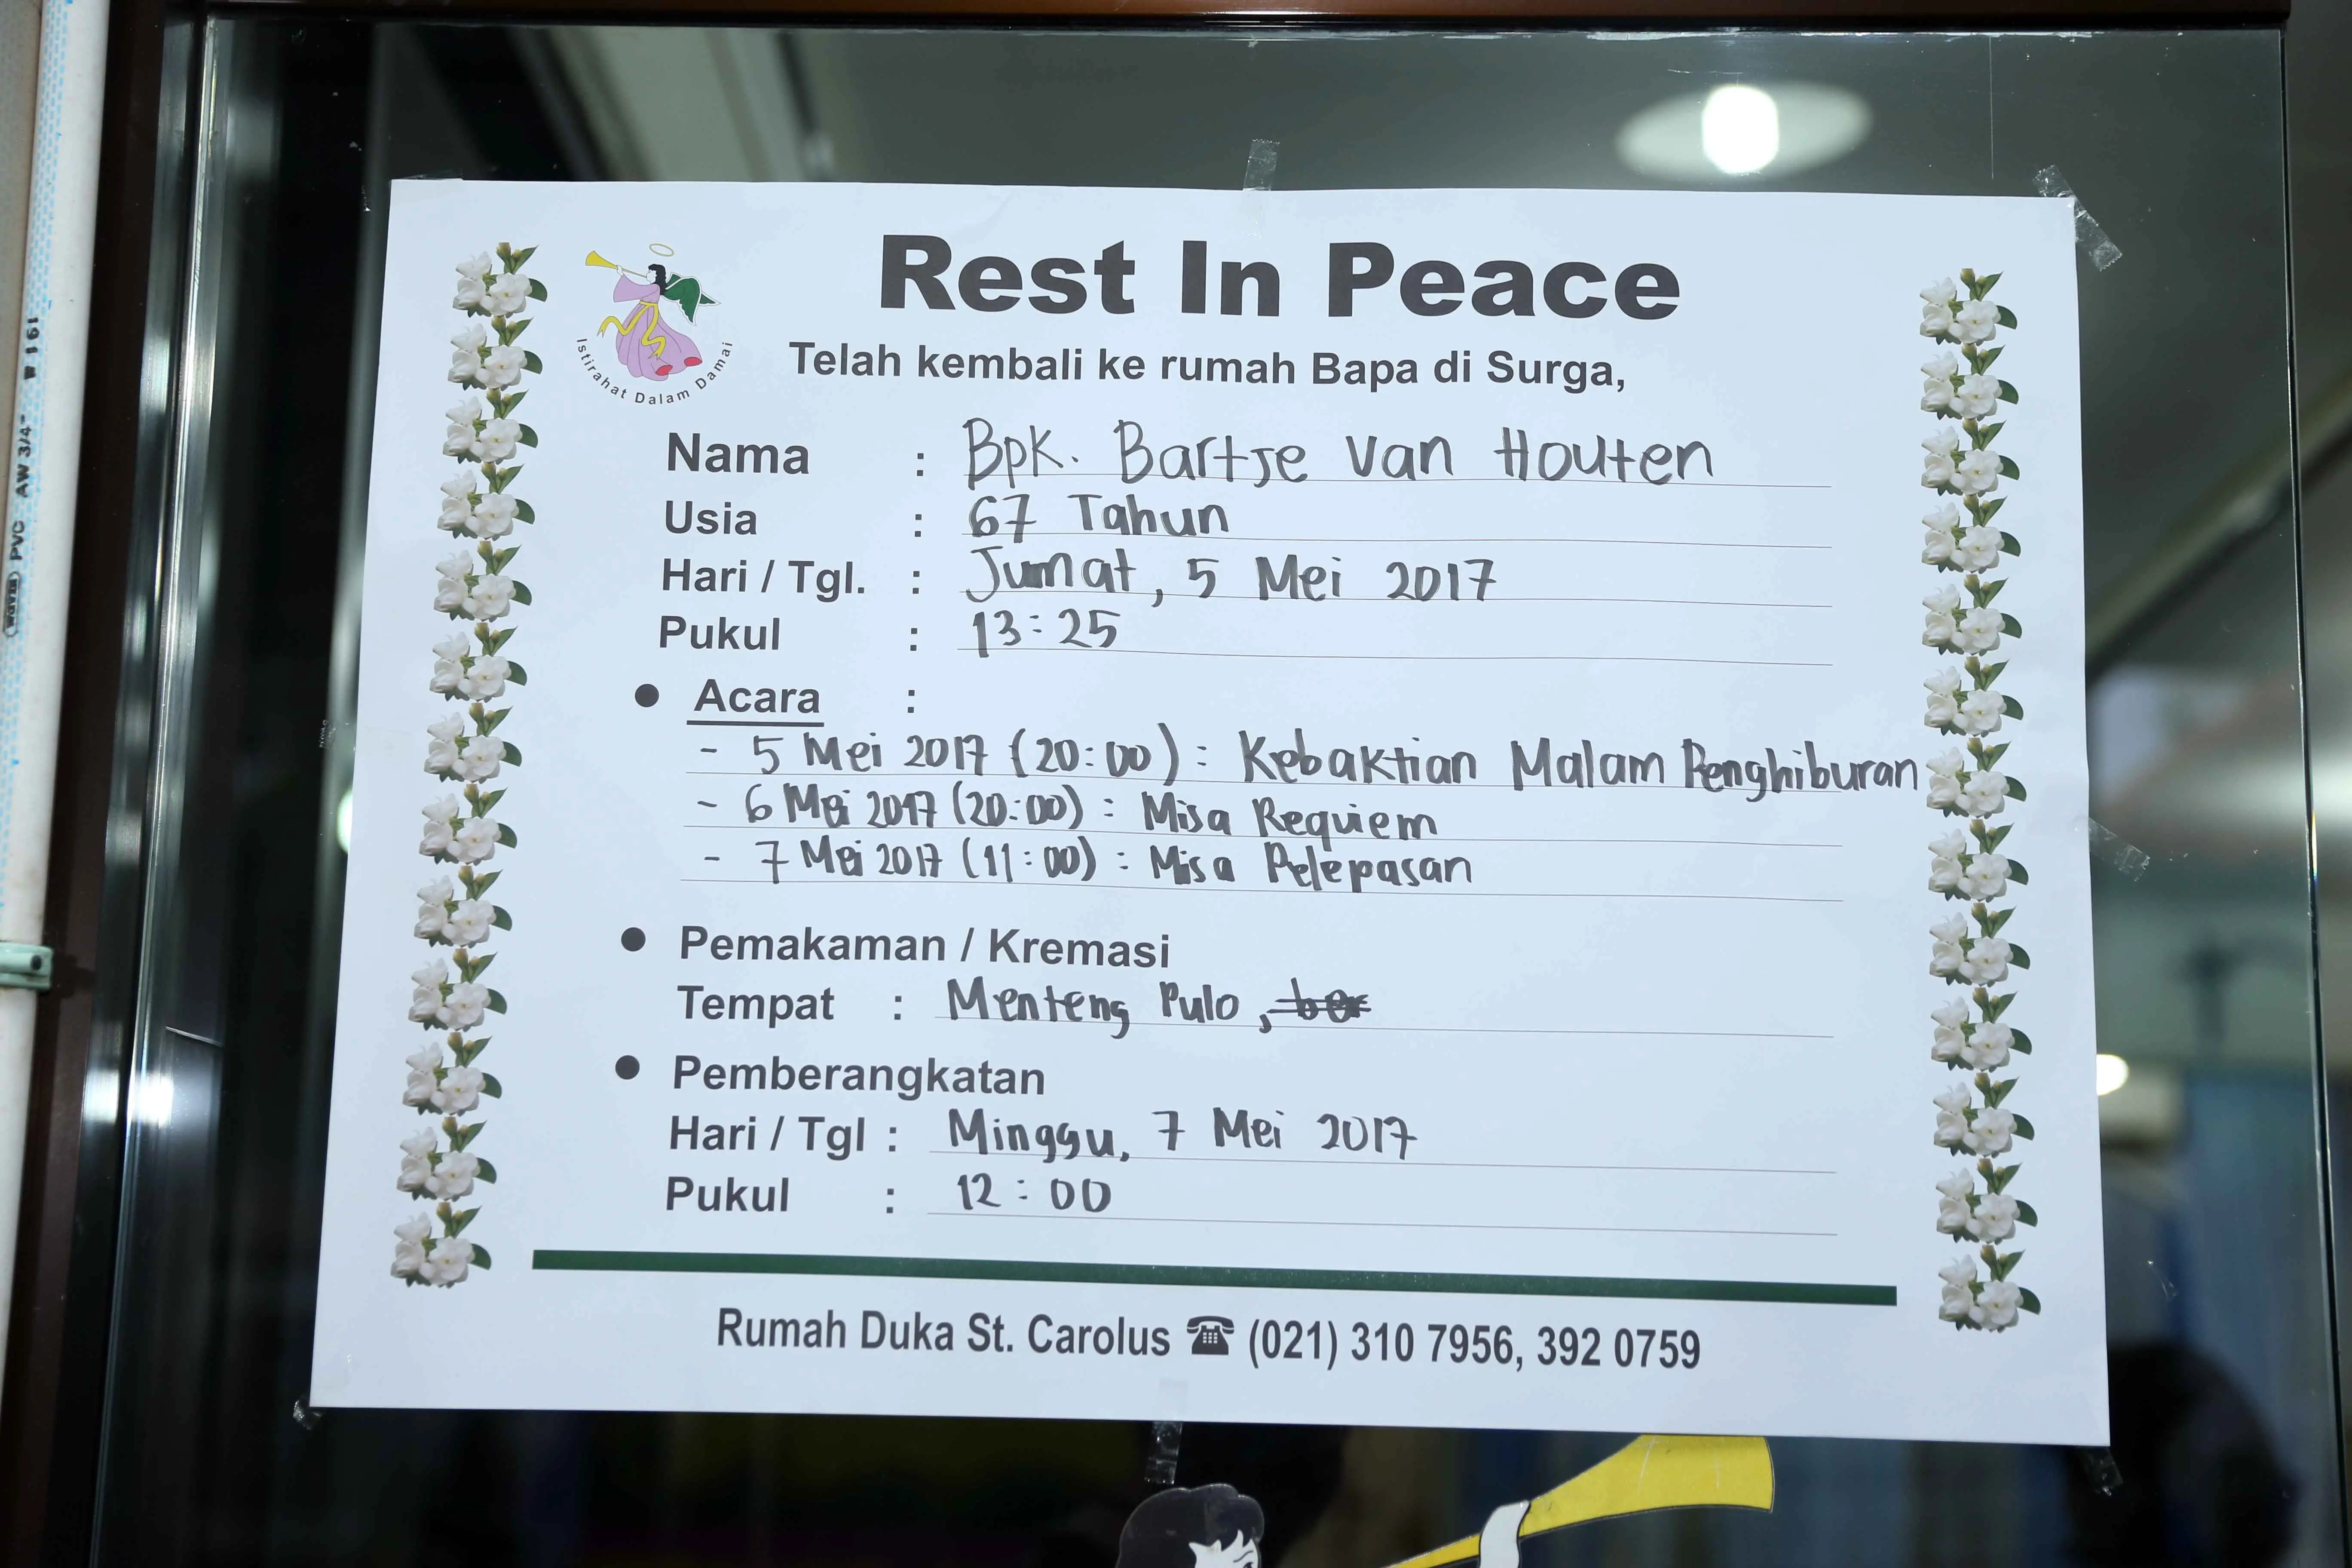 Rest In Peace
Istirahat Dalam Damai
Telah kembali ke rumah Bapa di Surga,
Nama : Bpk. Bartje Van Houten
Usia : 67 Tahun
Hari / Tgl. : Jumat, 5 Mei 2017
Pukul : 13:25
● Acara :
- 5 Mei 2017 (20:00) : Kebaktian Malam Penghiburan
- 6 Mei 2017 (20:00) : Misa Requiem
- 7 Mei 2017 (11:00) : Misa Pelepasan
● Pemakaman / Kremasi
Tempat : Menteng Pulo,
● Pemberangkatan
Hari / Tgl : Minggu, 7 Mei 2017
Pukul : 12:00
Rumah Duka St. Carolus ☎ (021) 310 7956, 392 0759
PVC AW 3/4"